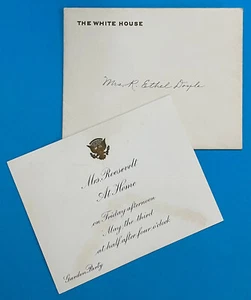 THE WHITE HOUSE
Mrs. R. Ethel Doyle
Mrs. Roosevelt
At Home
on Friday afternoon
May the third
at half after four o'clock
Garden Party